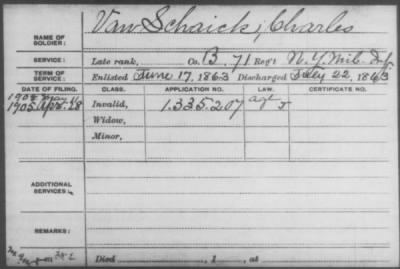 NAME OF SOLDIER: Van Schaick, Charles
SERVICE: Late rank, Co. B, 71 Reg't N.Y. Mil. Inf
TERM OF SERVICE: Enlisted June 17, 1863 Discharged July 22, 1863
DATE OF FILING. CLASS. APPLICATION NO. LAW. CERTIFICATE NO.
1905 Apr. 28 Invalid, 1.335.207
Widow,
Minor,
ADDITIONAL SERVICES:
REMARKS:
Died , 1 , at